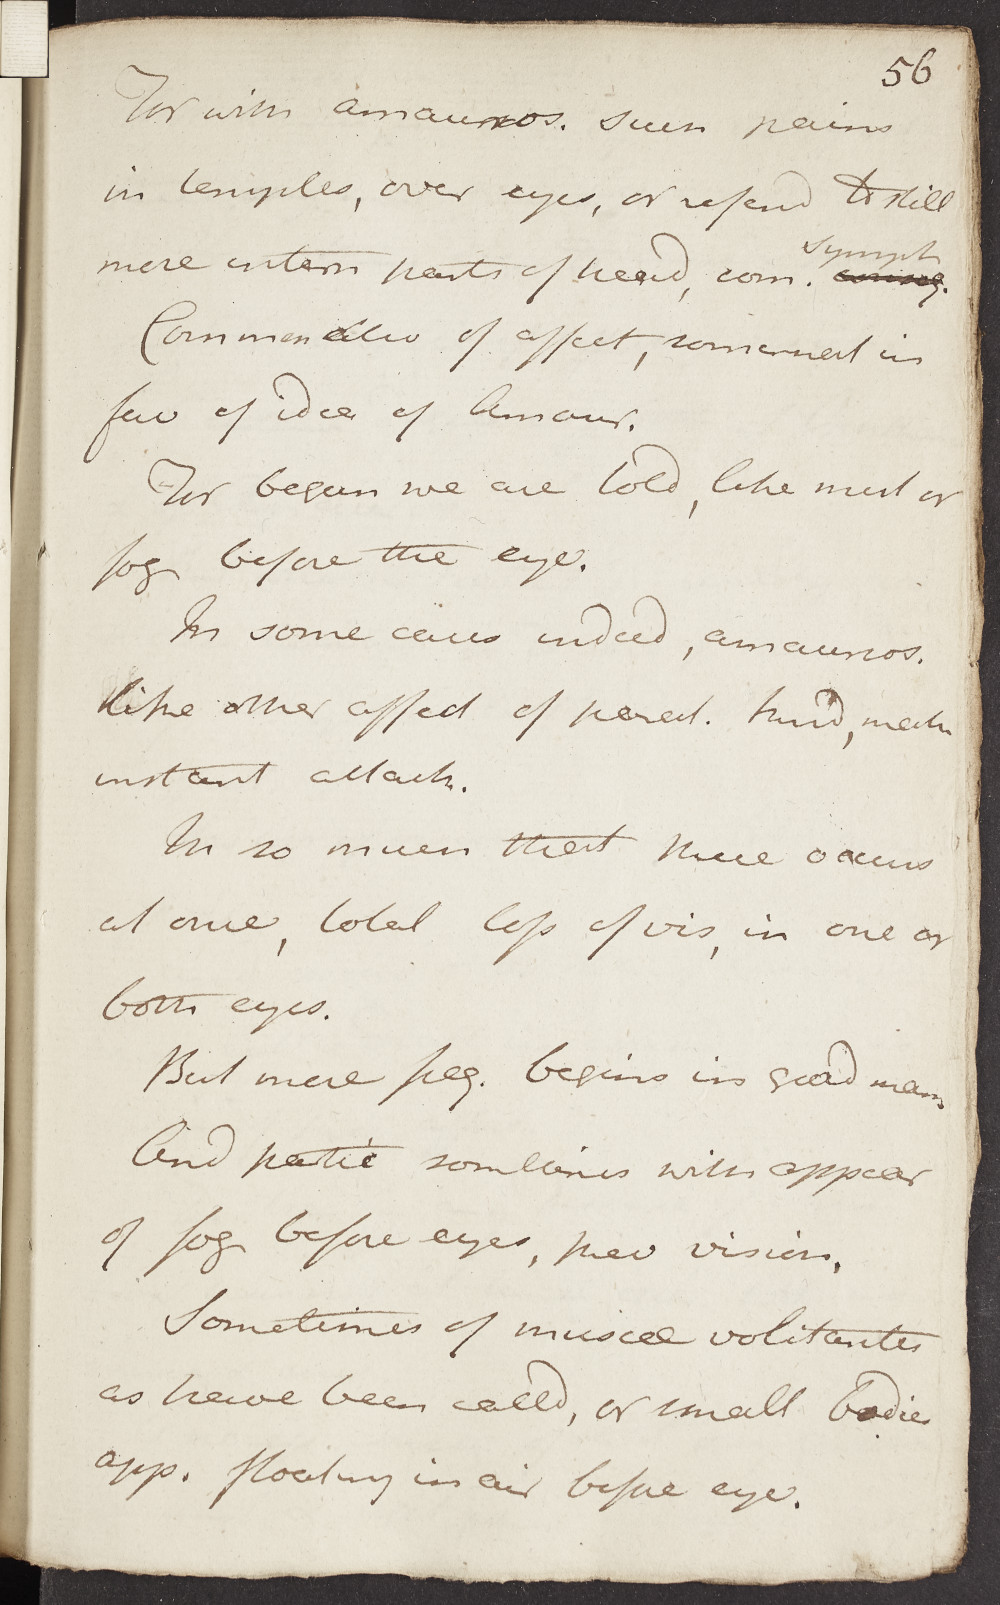 56
For with amauros. such pains
in temples, over eyes, or refer'd to still
more intern parts of head, com. symph conseq.
Commen allso of affect, somewhat in
fav of idea of Amaur.
For began we are told, like mist or
fog before the eye.
In some cases indeed, amauros.
like other affect of paral. kind, makes
instant attack.
In so much that there occurs
at once, total loss of vis, in one or
both eyes.
But more freq. begins in grad mann
And patie sometimes with appear
of fog before eyes, prev vision,
Sometimes of muscae volitantes
as have been called, or small bodies
app. floating in air before eye.